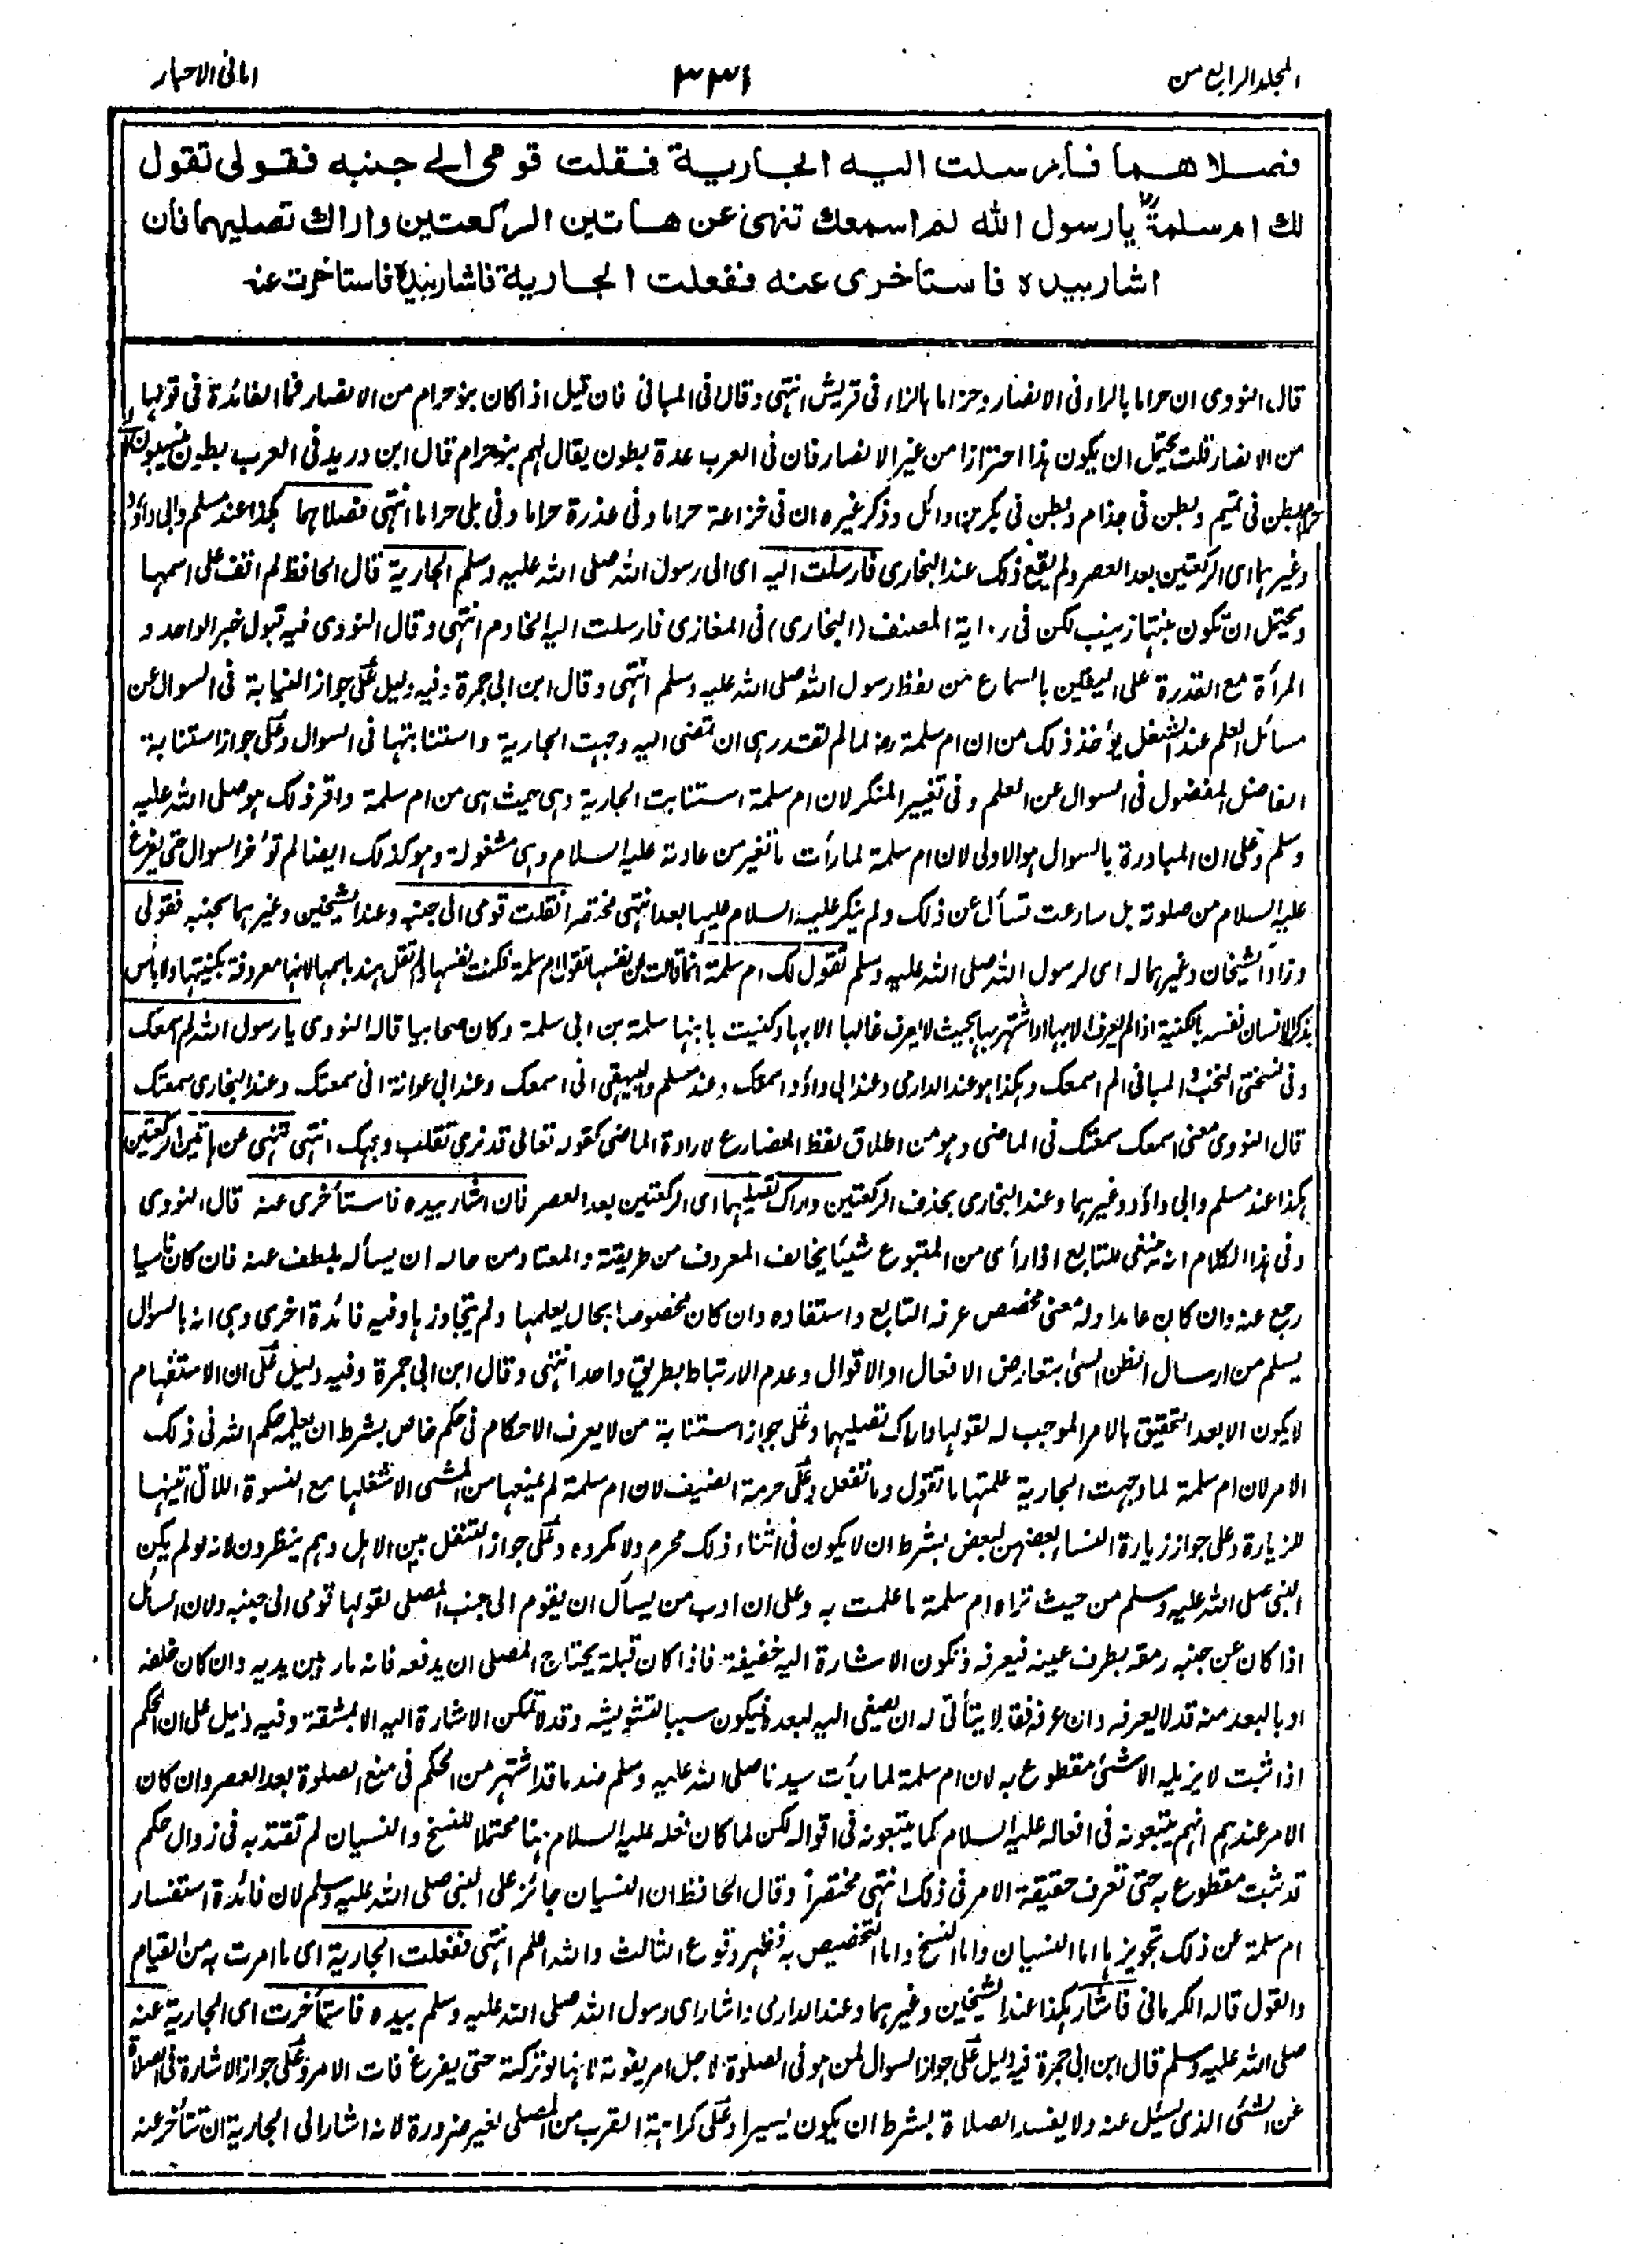 المجلد الرابع من
٣٣١
امانی الاحبار
فصلاهما فأرسلت اليه الجارية فقلت قومی الى جنبه فقولی تقول
لك ام سلمةؓ يا رسول الله لم اسمعك تنهى عن هاتين الركعتين واراك تصليهما فان
اشار بيده فاستاخری عنه ففعلت الجارية فاشار بيده فاستاخرت عنه
قال النووی ان حراما بالراء فی الانصار وحزاما بالزاء فی قریش انتهی وقال فی المبانی فان قیل اذا کان بنو حرام من الانصار فما الفائدة فی قولها
من الانصار قلت یحتمل ان یکون هذا احترازا من غیر الانصار فان فی العرب عدة بطون یقال لهم بنو حرام قال ابن درید فی العرب بطون ینسبون الی
حرام بطن فی تمیم وبطن فی جذام وبطن فی بکر بن وائل وذکر غیره ان فی خزاعة حراما وفی عذرة حراما وفی بلی حراما انتهی فصلاهما هکذا عند مسلم وابی داؤد
وغیرهما ای الرکعتین بعد العصر ولم یقع ذلک عند البخاری فارسلت الیه ای الی رسول الله صلی الله علیه وسلم الجاریة قال الحافظ لم اقف علی اسمها
ویحتمل ان تکون بنتها زینب لکن فی روایة المصنف (البخاری) فی المغازی فارسلت الیه الخادم انتهی وقال النووی فیه قبول خبر الواحد و
المرأة مع القدرة علی الیقین بالسماع من لفظ رسول الله صلی الله علیه وسلم انتهی وقال ابن ابی جمرة وفیه دلیل علی جواز النیابة فی السوال عن
مسائل العلم عند الشغل یؤخذ ذلک من ان ام سلمة رض لما لم تقدر هی ان تمضی الیه وجهت الجاریة واستنابتها فی السوال وعلی جواز استنابة
الفاضل المفضول فی السوال عن العلم وفی تغییر المنکر لان ام سلمة استنابت الجاریة وهی حیث هی من ام سلمة واقر ذلک هو صلی الله علیه
وسلم وعلی ان المبادرة بالسوال هو الاولی لان ام سلمة لما رأت ما تغیر من عادته علیه السلام وهی مشغولة وهو کذلک ایضا لم تؤخر السوال حتی یفرغ
علیه السلام من صلوته بل سارعت تسأل عن ذلک ولم ینکر علیه السلام علیها بعد انتهی مختصرا فقلت قومی الی جنبه وعند الشیخین وغیرهما بجنبه فقولی
وزاد الشیخان وغیرهما له ای لرسول الله صلی الله علیه وسلم تقول لک ام سلمة انما قالت عن نفسها تقول ام سلمة فکنت نفسها ولم تقل هند باسمها لانها معروفة بکنیتها ولا بأس
بذکر الانسان نفسه بالکنیة اذا لم یعرف الا بها او اشتهر بها بحیث لا یعرف غالبا الا بها وکنیت بابنها سلمة بن ابی سلمة وکان صحابیا قاله النووی یا رسول الله لم اسمعک
وفی نسختی النخب والمبانی الم اسمعک وهکذا هو عند الدارمی وعند ابی داؤد اسمعک وعند مسلم والبیهقی انی اسمعک وعند ابی عوانة انی سمعتک وعند البخاری سمعتک
قال النووی معنی اسمعک سمعتک فی الماضی وهو من اطلاق لفظ المضارع لارادة الماضی کقوله تعالی قد نری تقلب وجهک انتهی تنهی عن هاتین الرکعتین
هکذا عند مسلم وابی داؤد وغیرهما وعند البخاری بحذف الرکعتین واراک تصلیهما ای الرکعتین بعد العصر فان اشار بیده فاستأخری عنه قال النووی
وفی هذا الکلام انه ینبغی للتابع اذا رأی من المتبوع شیئا یخالف المعروف من طریقته والمعتاد من حاله ان یسأله بلطف عنه فان کان ناسیا
رجع عنه وان کان عامدا وله معنی مخصص عرفه التابع واستفاده وان کان مخصوصا بحال یعلمها ولم یتجاوزها وفیه فائدة اخری وهی انه بالسوال
یسلم من ارسال الظن السئ بتعارض الافعال او الاقوال وعدم الارتباط بطریق واحد انتهی وقال ابن ابی جمرة وفیه دلیل علی ان الاستفهام
لا یکون الا بعد التحقیق بالامر الموجب له لقولها واراک تصلیهما وعلی جواز استنابة من لا یعرف الاحکام فی حکم خاص بشرط ان یعلمه حکم الله فی ذلک
الامر لان ام سلمة لما وجهت الجاریة علمتها ما تقول وما تفعل وعلی حرمة الضیف لان ام سلمة لم یمنعها من المشی الا شغلها مع النسوة اللاتی اتینها
للزیارة وعلی جواز زیارة النساء بعضهن لبعض بشرط ان لا یکون فی اثناء ذلک محرم ولا مکروه وعلی جواز التنفل بین الاهل وهم ینظرون لانه لو لم یکن
النبی صلی الله علیه وسلم من حیث تراه ام سلمة ما علمت به وعلی ان ادب من یسأل ان یقوم الی جنب المصلی لقولها قومی الی جنبه ولان السائل
اذا کان عن جنبه رمقه بطرف عینه فیعرفه فتکون الاشارة الیه خفیفة فاذا کان قبلته یحتاج المصلی ان یدفعه فانه مار بین یدیه وان کان خلفه
او بالبعد منه قد لا یعرفه وان عرفه فقد لا یتأتی له ان یصغی الیه لبعده فیکون سببا لتشویشه وقد لا تمکن الاشارة الیه الا بمشقة وفیه دلیل علی ان الحکم
اذا ثبت لا یزیله الا شئ مقطوع به لان ام سلمة لما رأت سیدنا صلی الله علیه وسلم ضد ما قد اشتهر من الحکم فی منع الصلوة بعد العصر وان کان
الامر عندهم انهم یتبعونه فی افعاله علیه السلام کما یتبعونه فی اقواله لکن لما کان فعله علیه السلام هنا محتملا للنسخ والنسیان لم تقتد به فی زوال حکم
قد ثبت مقطوع به حتی تعرف حقیقة الامر فی ذلک انتهی مختصراً وقال الحافظ ان النسیان جائز علی النبی صلی الله علیه وسلم لان فائدة استفسار
ام سلمة عن ذلک تجویزها اما النسیان واما النسخ واما التخصیص به فظهر وقوع الثالث والله اعلم انتهی ففعلت الجاریة ای ما امرت به من القیام
والقول قاله الکرمانی فاشار هکذا عند الشیخین وغیرهما وعند الدارمی واشار ای رسول الله صلی الله علیه وسلم بیده فاستأخرت ای الجاریة عنه
صلی الله علیه وسلم قال ابن ابی جمرة فیه دلیل علی جواز السوال لمن هو فی الصلوة لاجل امر یفوته لانها لو ترکته حتی یفرغ فات الامر وعلی جواز الاشارة فی الصلاة
عن الشئ الذی یسئل عنه ولا یفسد الصلاة بشرط ان یکون یسیرا وعلی کراهة القرب من المصلی لغیر ضرورة لانه اشار الی الجاریة ان تتأخر عنه